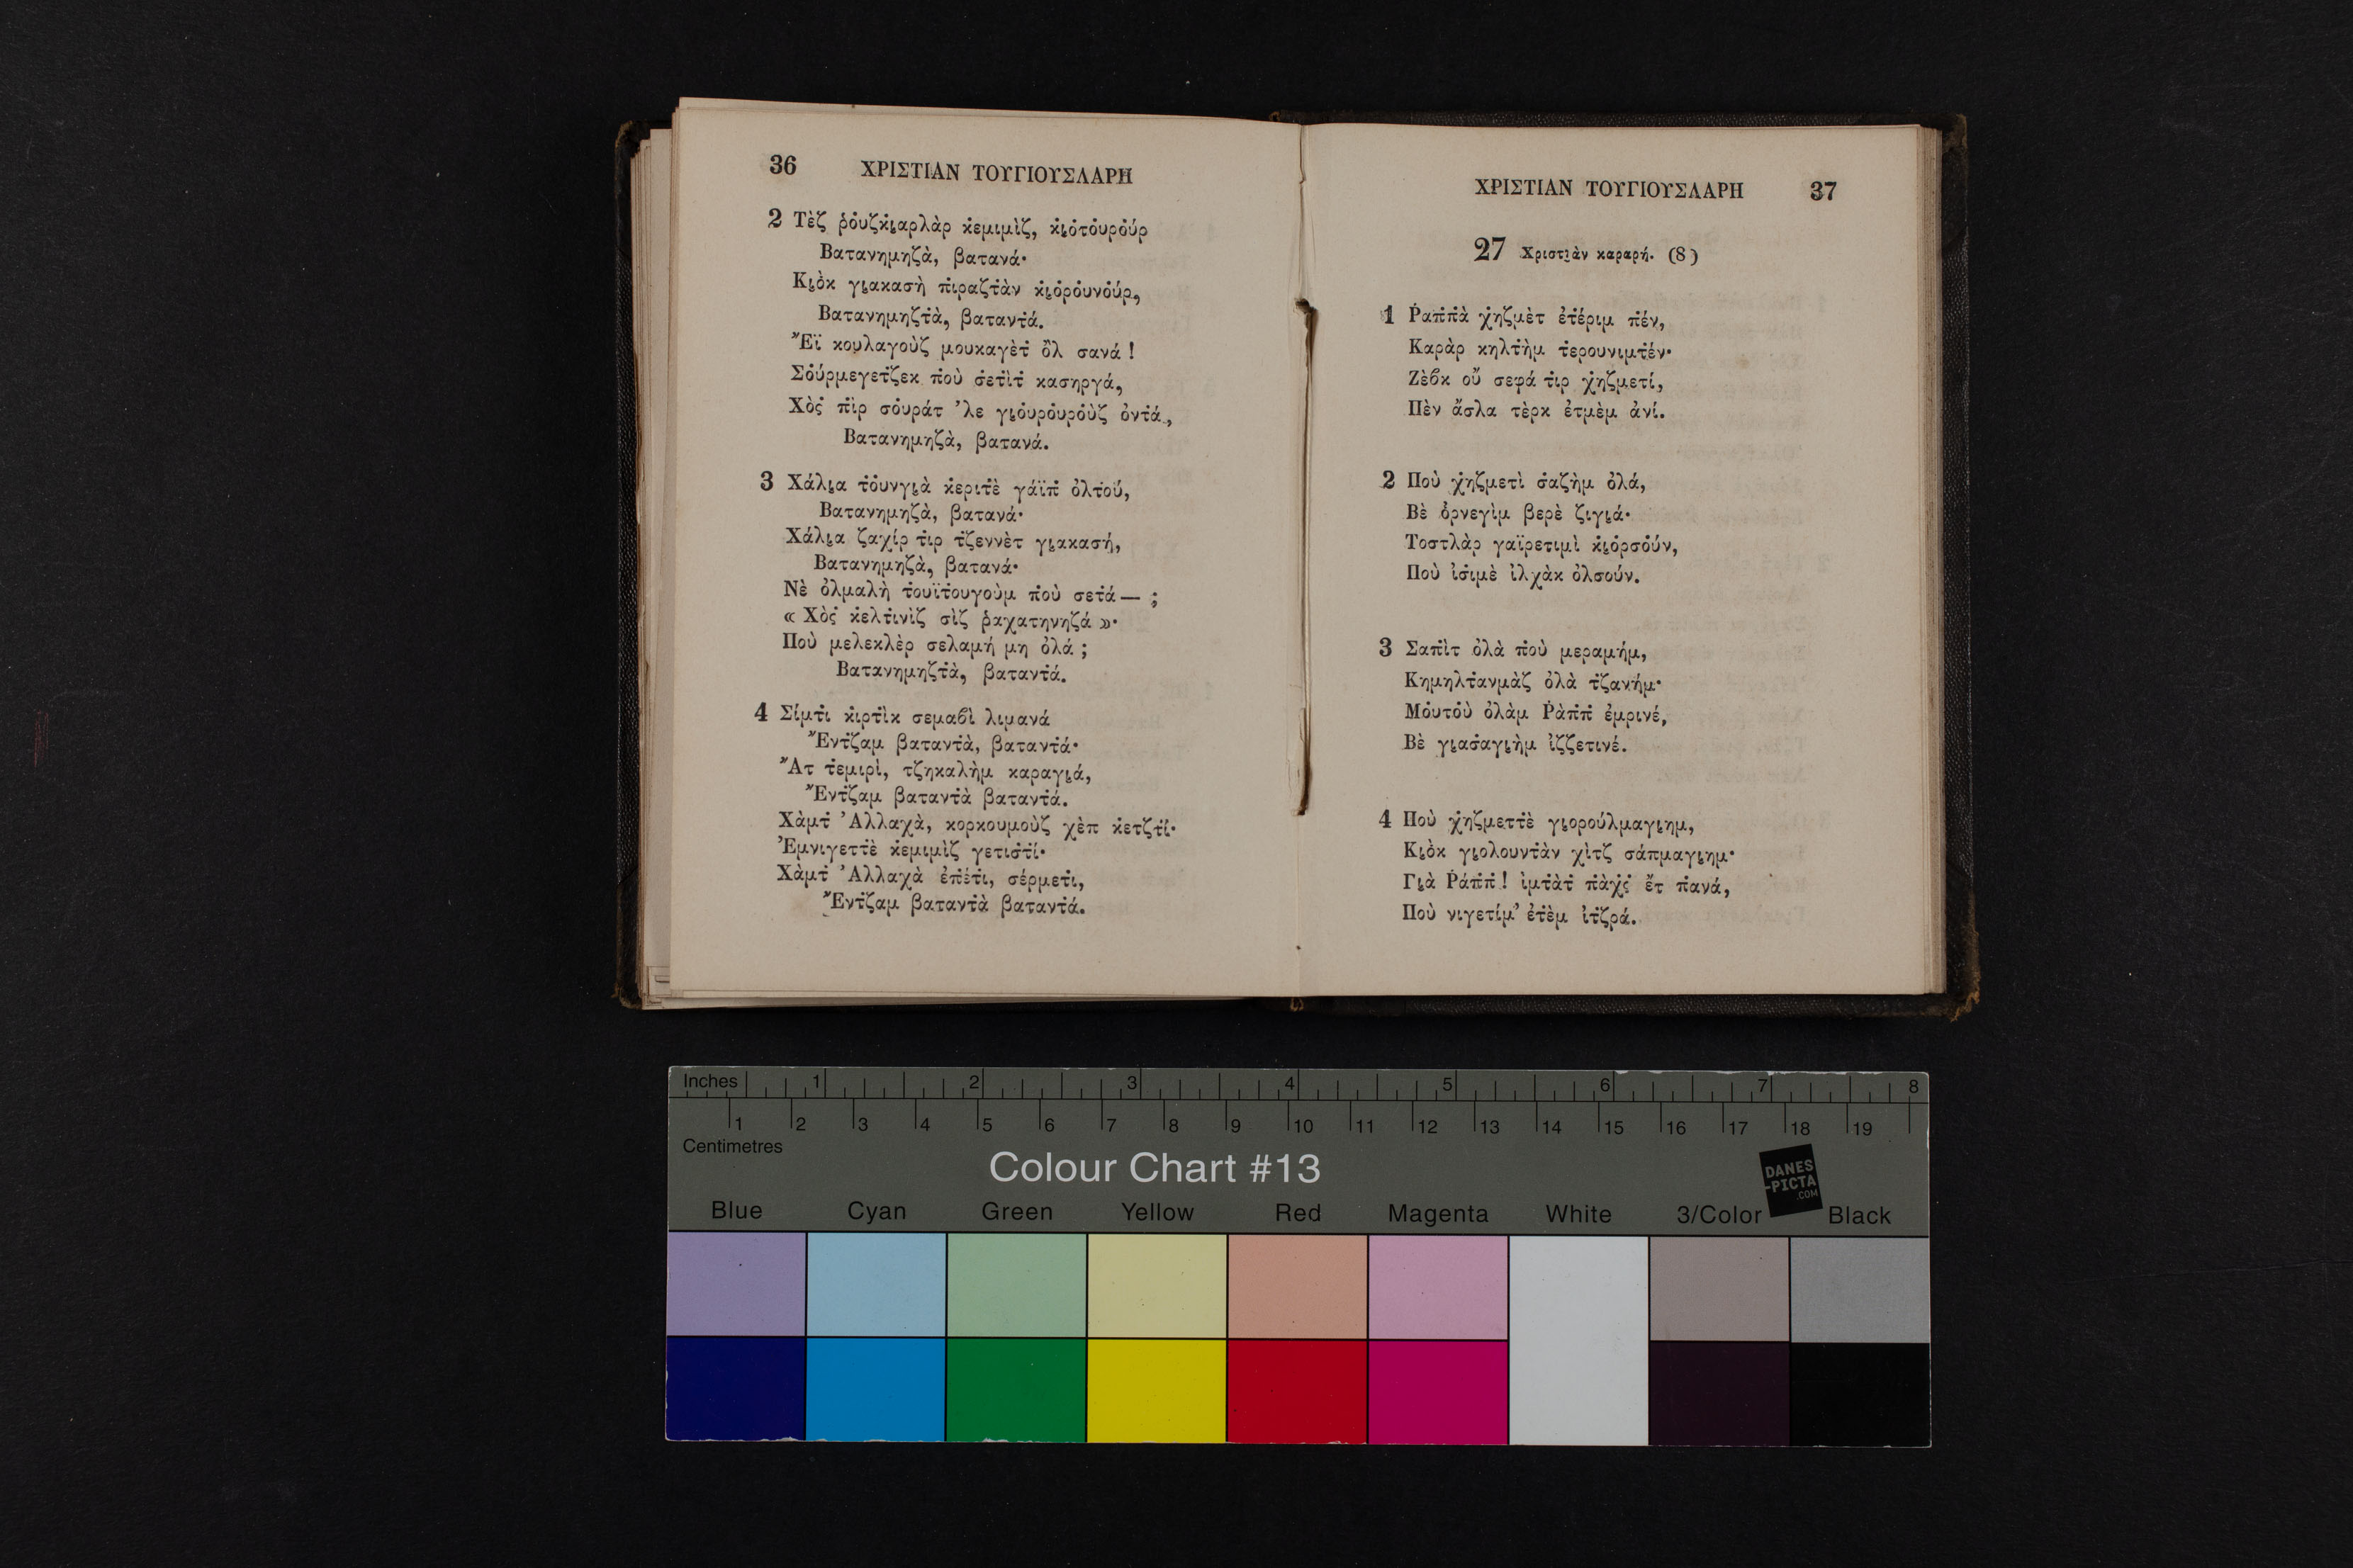 36 ΧΡΙΣΤΙΑΝ ΤΟΥΓΙΟΥΣΛΑΡΗ
2 Τὲζ ῥȯυζκ̇ι̰αρλὰρ κ̇εμιμὶζ, κ̇ι̰ȯτȯυρȯύρ
Βατανημηζὰ, βατανά·
Κι̰ȯ̀κ γι̰ακασὴ π̇ιραζτ̇ὰν κ̇ι̰ȯρȯυνȯύρ,
Βατανημηζτ̇ὰ, βαταντ̇ά.
Ἔϊ κουλαγοὺζ μουκαγὲτ̇ ὂλ σανά !
Σȯύρμεγετζ̇εκ π̇οὺ σ̇ετὶτ̇ κασηργά,
Χὸς̇ π̇ὶρ σȯυράτ 'λε γι̰ȯυρȯυρȯὺζ ὀντ̇ά,
Βατανημηζὰ, βατανά.
3 Χάλι̰α τ̇ȯυνγι̰ὰ κ̇εριτ̇ὲ γάϊπ̇ ὀλτ̇ού,
Βατανημηζὰ, βατανά·
Χάλι̰α ζαχίρ τ̇ιρ τζ̇εννὲτ γι̰ακασή,
Βατανημηζὰ, βατανά·
Νὲ ὀλμαλὴ τ̇ουϊτ̇ουγοὺμ π̇οὺ σετ̇ά — ;
« Χὸς̇ κ̇ελτ̇ινὶζ σὶζ ῥαχατηνηζά »·
Π̇οὺ μελεκλὲρ σελαμή μη ὀλά ;
Βατανημηζτ̇ὰ, βαταντ̇ά.
4 Σίμτ̇ι κ̇ιρτ̇ὶκ σεμαϐὶ λιμανά
Ἔντζ̇αμ βαταντ̇ὰ, βαταντ̇ά·
Ἄτ τ̇εμιρὶ, τζηκαλὴμ καραγι̰ά,
Ἔντζ̇αμ βαταντ̇ὰ βαταντ̇ά.
Χὰμτ̇ Ἀλλαχὰ, κορκουμοὺζ χὲπ κ̇ετζτ̇ί·
Ἐμνιγεττὲ κ̇εμιμὶζ γετισ̇τ̇ί·
Χὰμτ̇ Ἀλλαχὰ ἐπ̇έτ̇ι, σέρμετ̇ι,
Ἔντζ̇αμ βαταντ̇ὰ βαταντ̇ά.
ΧΡΙΣΤΙΑΝ ΤΟΥΓΙΟΥΣΛΑΡΗ 37
27 Χριστι̰ὰν καραρή. (8)
1 Ῥαπ̇π̇ὰ χ̇ηζμὲτ ἐτ̇έριμ π̇έν,
Καρὰρ κηλτ̇ὴμ τ̇ερουνιμτ̇έν·
Ζὲϐκ οὔ σεφά τ̇ιρ χ̇ηζμετί,
Π̇ὲν ἄσλα τὲρκ ἐτμὲμ ἀνί.
2 Π̇οὺ χ̇ηζμετὶ σ̇αζὴμ ὀλά,
Βὲ ὀ̇ρνεγὶμ βερὲ ζιγι̰ά·
Τοστλὰρ γαϊρετιμὶ κ̇ι̰ȯρσȯύν,
Π̇οὺ ἰσ̇ιμὲ ἰλχὰκ ὀλσούν.
3 Σαπ̇ὶτ ὀλὰ π̇οὺ μεραμήμ,
Κημηλτ̇ανμὰζ ὀλὰ τζ̇ανήμ·
Μȯυτ̇ȯὺ ὀλὰμ Ῥὰπ̇π̇ ἐμρινέ,
Βὲ γι̰ασ̇αγι̰ὴμ ἰζζετινέ.
4 Π̇οὺ χ̇ηζμεττ̇ὲ γι̰ορούλμαγι̰ημ,
Κι̰ȯ̀κ γι̰ολουντ̇ὰν χὶτζ σάπμαγι̰ημ·
Γι̰ὰ Ῥάπ̇π̇ ! ἰμτ̇ὰτ̇ π̇ὰχ̇ς̇ ἔτ π̇ανά,
Π̇οὺ νιγετίμ' ἐτ̇ὲμ ἰτζ̇ρά.
Inches 1 2 3 4 5 6 7 8
1 2 3 4 5 6 7 8 9 10 11 12 13 14 15 16 17 18 19
Centimetres
Colour Chart #13
DANES
-PICTA
.COM
Blue Cyan Green Yellow Red Magenta White 3/Color Black